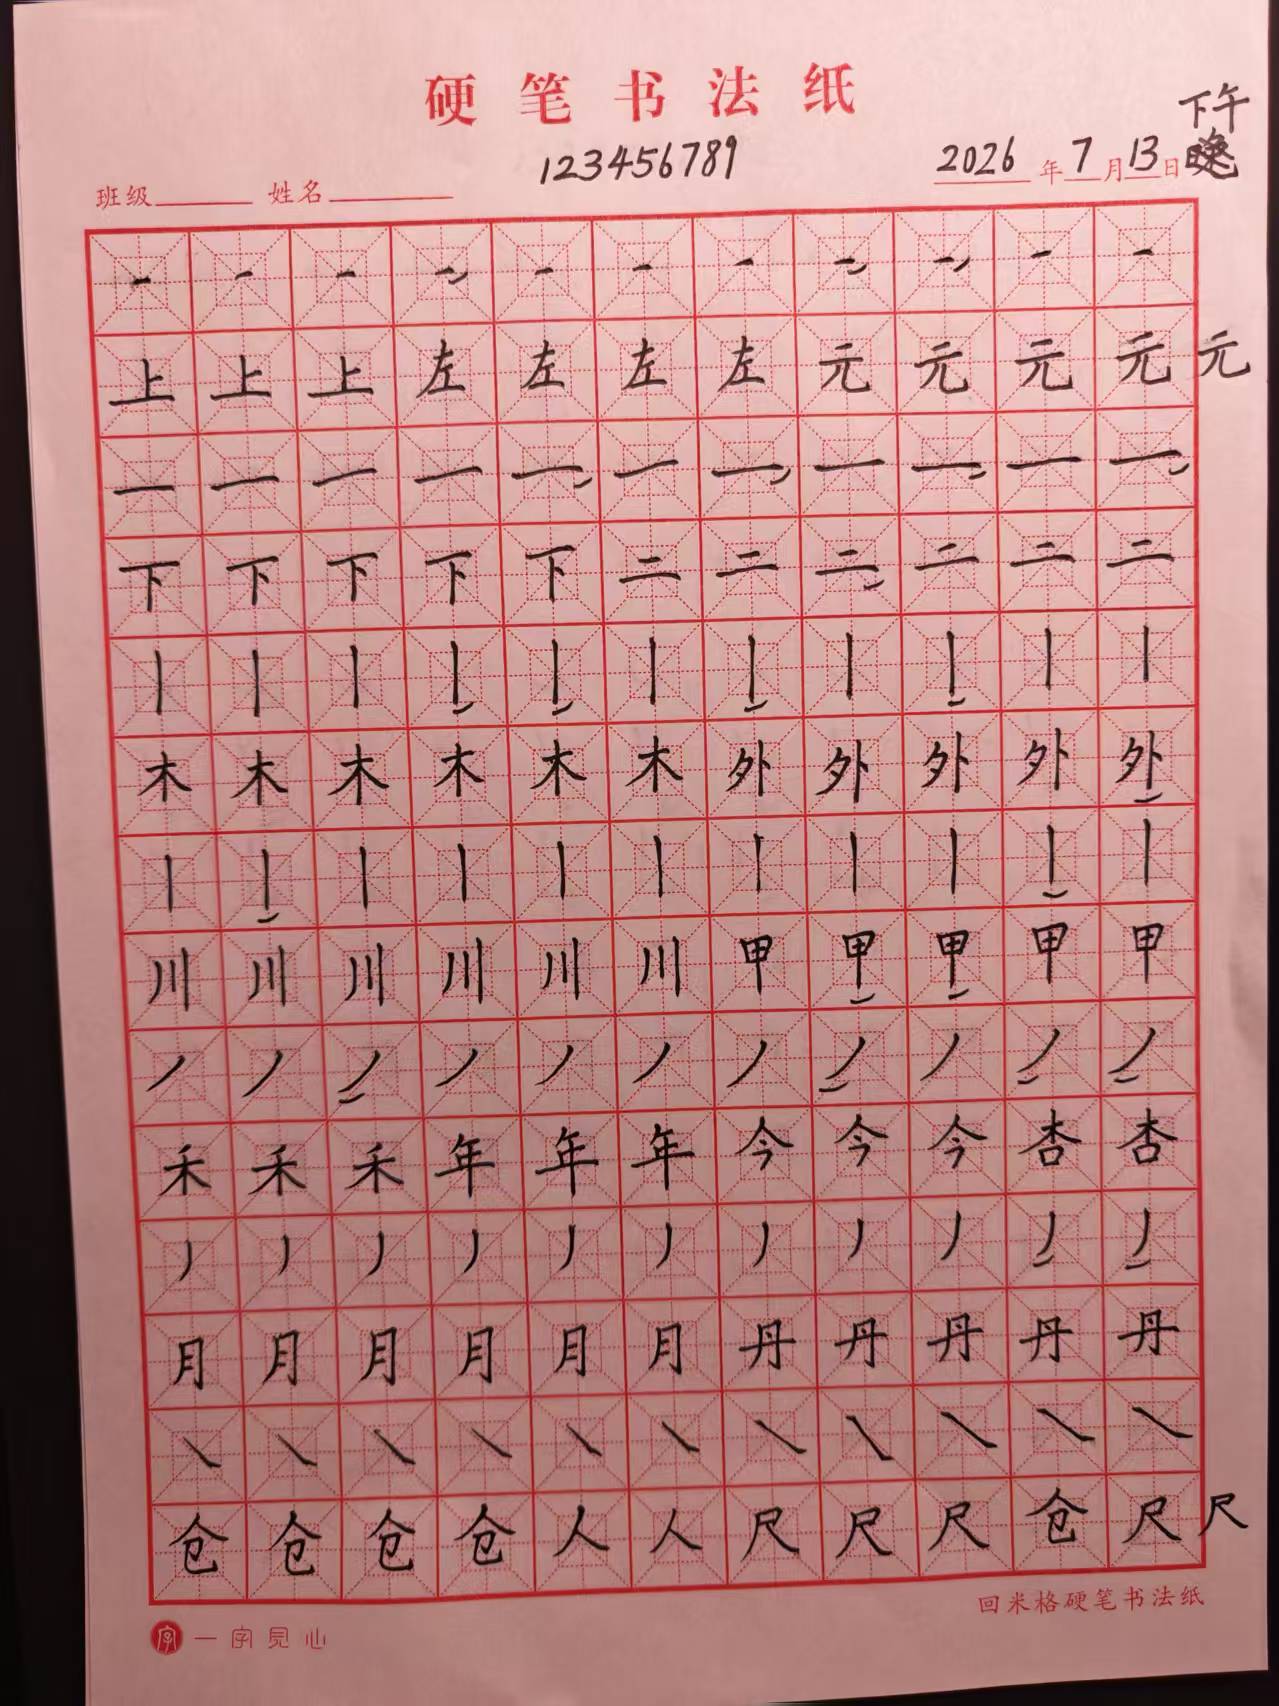 硬笔书法纸
下午
123456789
2026年7月13日晚
班级 姓名
一一一一一一一一一一一
上上上左左左左元元元元元
一一一一一一一一一一一
下下下下下二二二二二二
丨丨丨丨丨丨丨丨丨丨丨
木木木木木木外外外外外
丨丨丨丨丨丨丨丨丨丨丨
川川川川川川甲甲甲甲甲
丿丿丿丿丿丿丿丿丿丿丿
禾禾禾年年年今今今杏杏
丿丿丿丿丿丿丿丿丿丿丿
月月月月月月丹丹丹丹丹
㇏㇏㇏㇏㇏㇏㇏㇏㇏㇏㇏
仓仓仓仓人人尺尺尺仓尺尺
回米格硬笔书法纸
字 一字見心